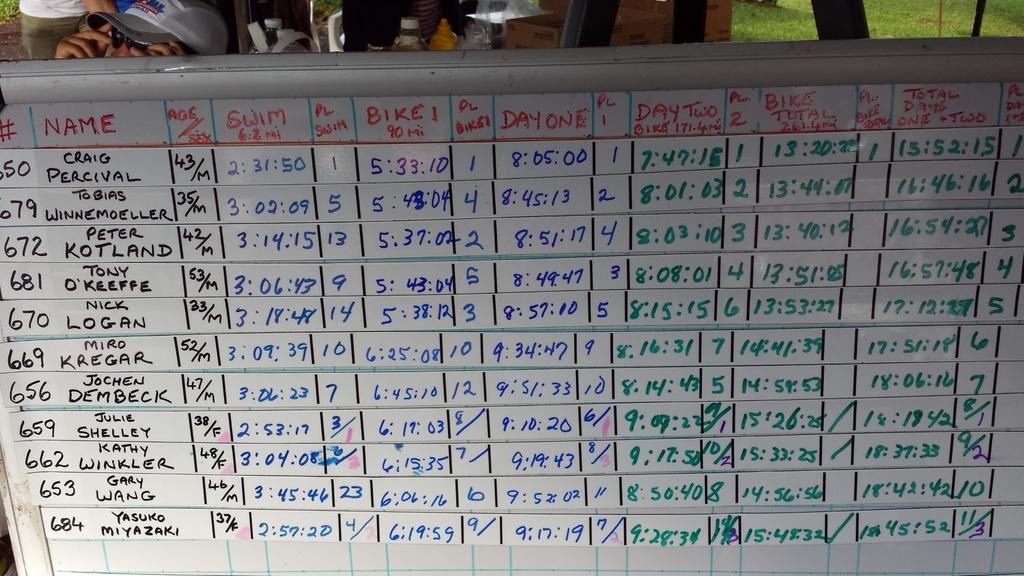 # NAME AGE/SEX SWIM 6.2 Mi PL SWIM BIKE 1 90 Mi PL BIKE 1 DAY ONE PL 1 DAY TWO BIKE 171.4 Mi PL. 2 BIKE TOTAL 261.4 Mi PL. TOTAL DAYS ONE + TWO PL
650 CRAIG PERCIVAL 43/M 2:31:50 1 5:33:10 1 8:05:00 1 7:47:15 1 13:20:25 1 15:52:15 1
679 TOBIAS WINNEMOELLER 35/M 3:02:09 5 5:43:04 4 8:45:13 2 8:01:03 2 13:44:07 16:46:16 2
672 PETER KOTLAND 42/M 3:14:15 13 5:37:02 2 8:51:17 4 8:03:10 3 13:40:12 16:54:27 3
681 TONY O'KEEFFE 53/M 3:06:43 9 5:43:04 5 8:49:47 3 8:08:01 4 13:51:05 16:57:48 4
670 NICK LOGAN 33/M 3:18:48 14 5:38:12 3 8:57:10 5 8:15:15 6 13:53:27 17:12:27 5
669 MIRO KREGAR 52/M 3:09:39 10 6:25:08 10 9:34:47 9 8:16:31 7 14:41:39 17:51:18 6
656 JOCHEN DEMBECK 47/M 3:06:23 7 6:45:10 12 9:51:33 10 8:14:43 5 14:59:53 18:06:16 7
659 JULIE SHELLEY 38/F 2:53:17 3/1 6:17:03 8/ 9:10:20 6/1 9:09:22 9/1 15:26:25 / 18:19:42 8/1
662 KATHY WINKLER 48/F 3:04:08 6:15:35 7/ 9:19:43 8/3 9:17:50 10/2 15:33:25 / 18:37:33 9/2
653 GARY WANG 46/M 3:45:46 23 6:06:16 6 9:52:02 11 8:50:40 8 14:56:56 18:42:42 10
684 YASUKO MIYAZAKI 37/F 2:57:20 4/2 6:19:59 9/ 9:17:19 7/2 9:28:34 15:48:32 / 18:45:52 11/3